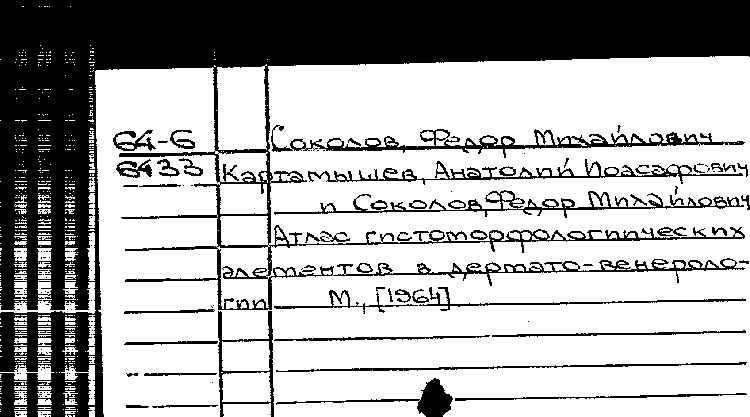 64-6 Соколов, Федор Михайлович
6433 Картамышев, Анатолий Иоасафович
и Соколов, Федор Михайлович
Атлас гистоморфологических
элементов в дермато-венероло-
гии М., [1964]